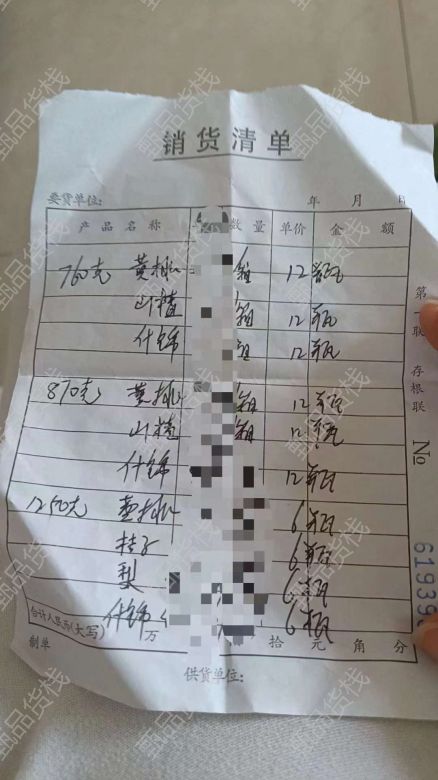 销货清单
要货单位: 年 月 日
产品名称 数量 单价 金额
760克 黄桃 箱 12瓶
山楂 箱 12瓶
什锦 12瓶
870克 黄桃 箱 12瓶
山楂 箱 12瓶
什锦 12瓶
1250克 黄桃 6瓶
桔子 6瓶
梨 6瓶
什锦 6瓶
合计人民币(大写) 万 拾 元 角 分
制单 供货单位:
第一联 存根联
No
619393
甄品货栈